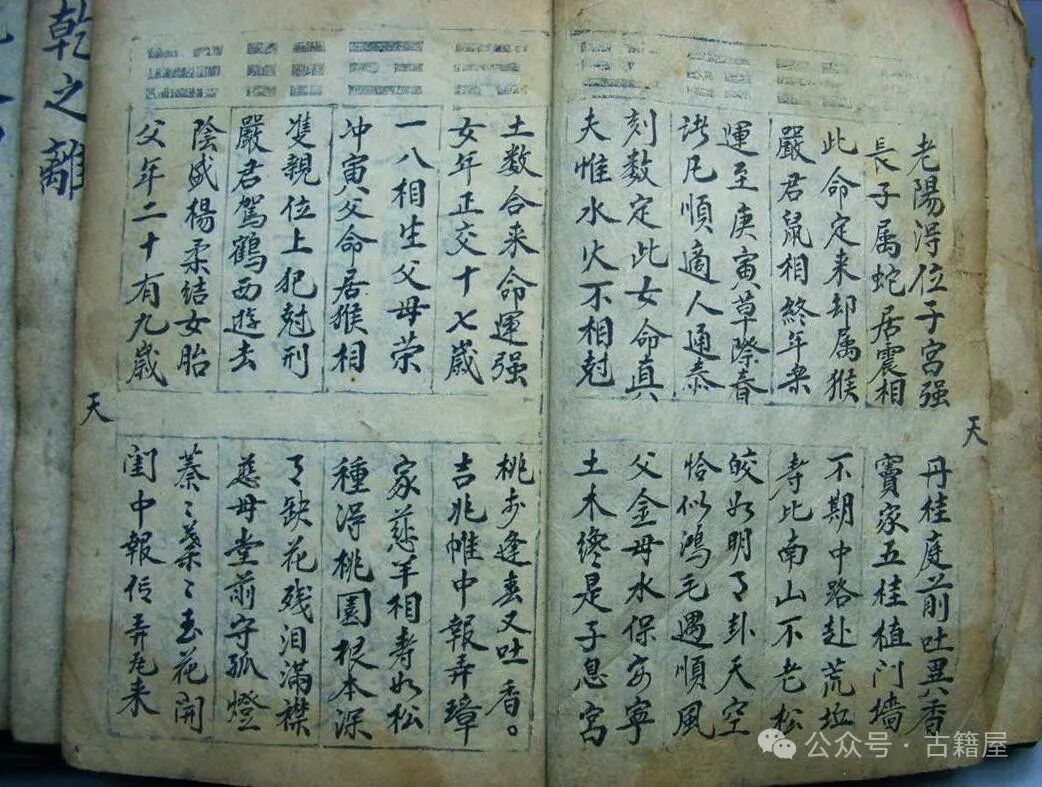 老陽淂位子宫强
長子属蛇居震相
此命定来却属猴
嚴君鼠相終年楽
運至庚寅草際春
諸凡順適人通泰
刻数定此女命真
夫惟水火不相尅
天
丹桂庭前吐異香
竇家五桂植门墙
不期中路赴荒坵
寿比南山不老松
皎如明月卦天空
恰似鴻毛遇順風
父金母水保安寧
土木纔是子息宫
土数合来命運强
女年正交十七歳
一八相生父母荣
冲寅父命居猴相
隻親位上犯尅刑
嚴君駕鶴西遊去
陰盛楊柔结女胎
父年二十有九歳
天
桃逢春又吐香。
吉兆帷中報弄璋
家慈羊相寿如松
種淂桃園根本深
月缺花残泪满襟
慈母堂前守孤燈
蓁〻葉〻玉花開
闺中報信弄瓦来
乾之離
公众号·古籍屋